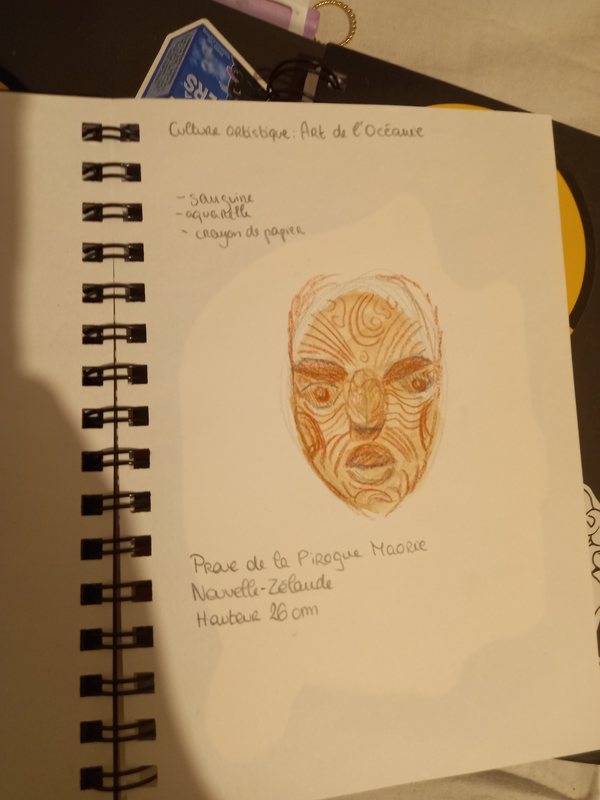 Culture artistique : Art de l'Océanie
- sanguine
- aquarelle
- crayon de papier
Proue de la Pirogue Maorie
Nouvelle-Zélande
Hauteur 26 cm